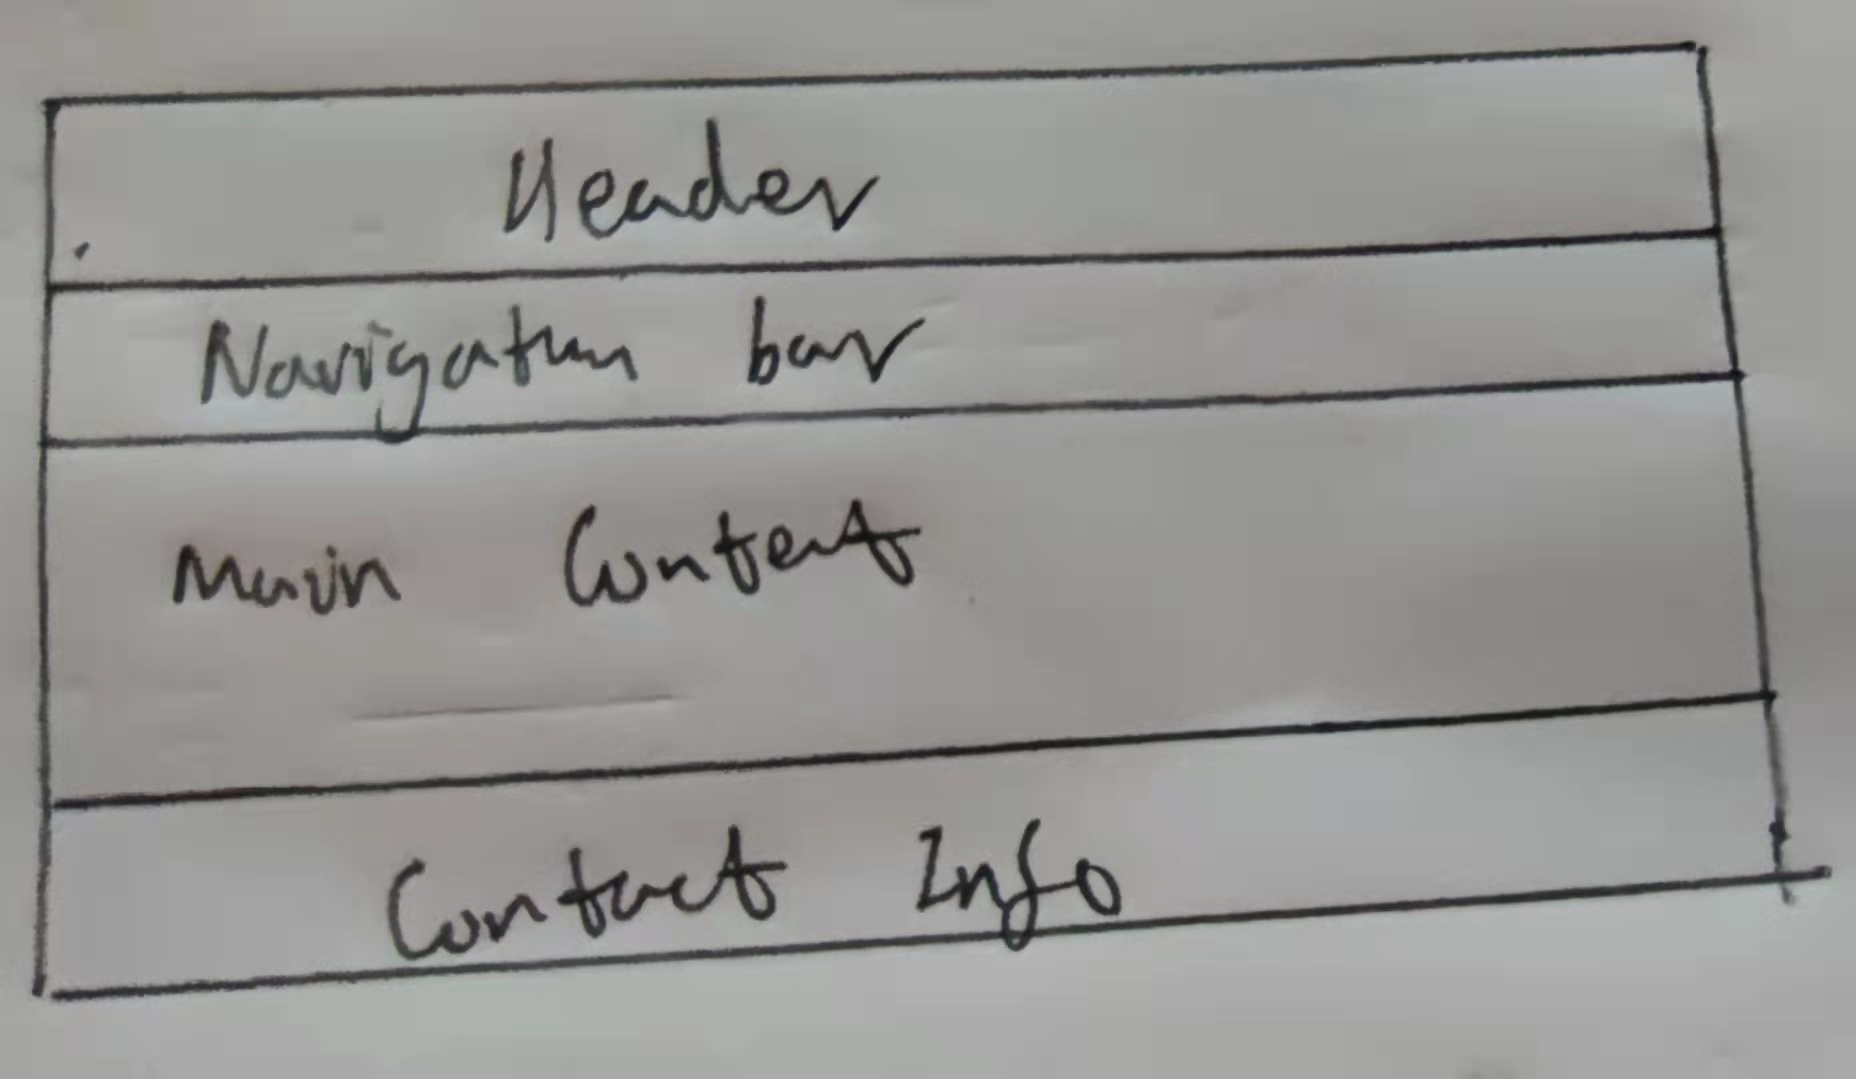 Header
Navigation bar
Main Content
Contact Info